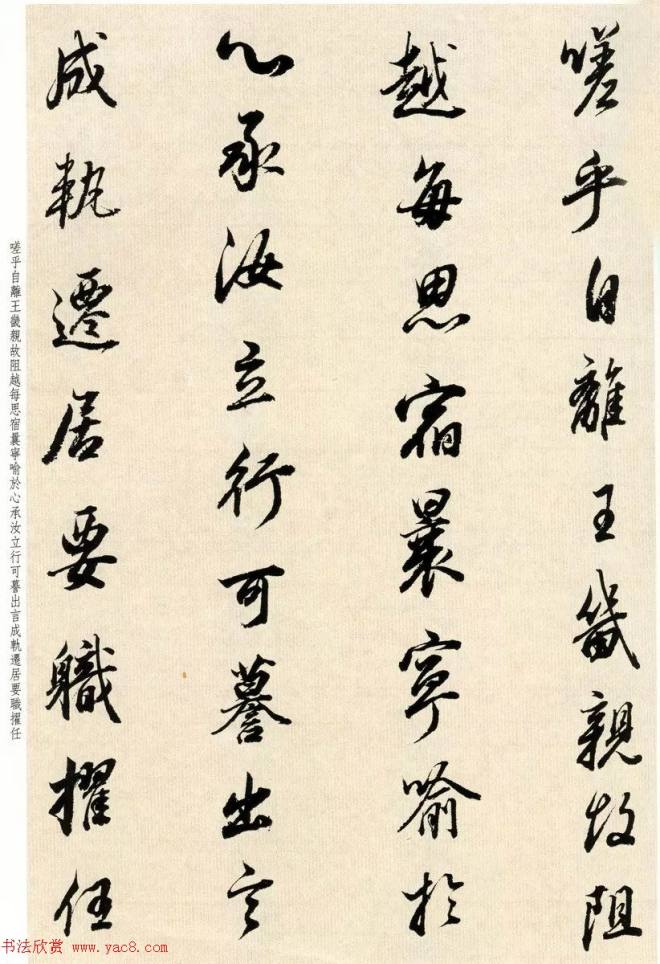 嗟乎自離王畿親故阻
越每思宿曩寧喻於
心承汝立行可譽出言
成軌遷居要職擢任
嗟乎自離王畿親故阻越每思宿曩寧喻於心承汝立行可譽出言成軌遷居要職擢任
书法欣赏 www.yac8.com